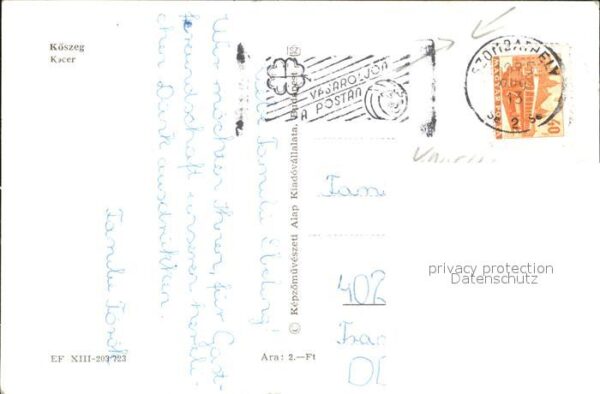 Kőszeg
Кэсег
VÁSÁROLJON
A POSTÁN
SZOMBATHELY
2
40
Familie
Wir möchten Ihnen, für Gast-
freundschaft unseren herzli-
chen Dank ausdrücken.
Familie Török
© Képzőművészeti Alap Kiadóvállalata, Budapest
402
DD
privacy protection
Datenschutz
EF XIII-203723
Ára: 2.—Ft